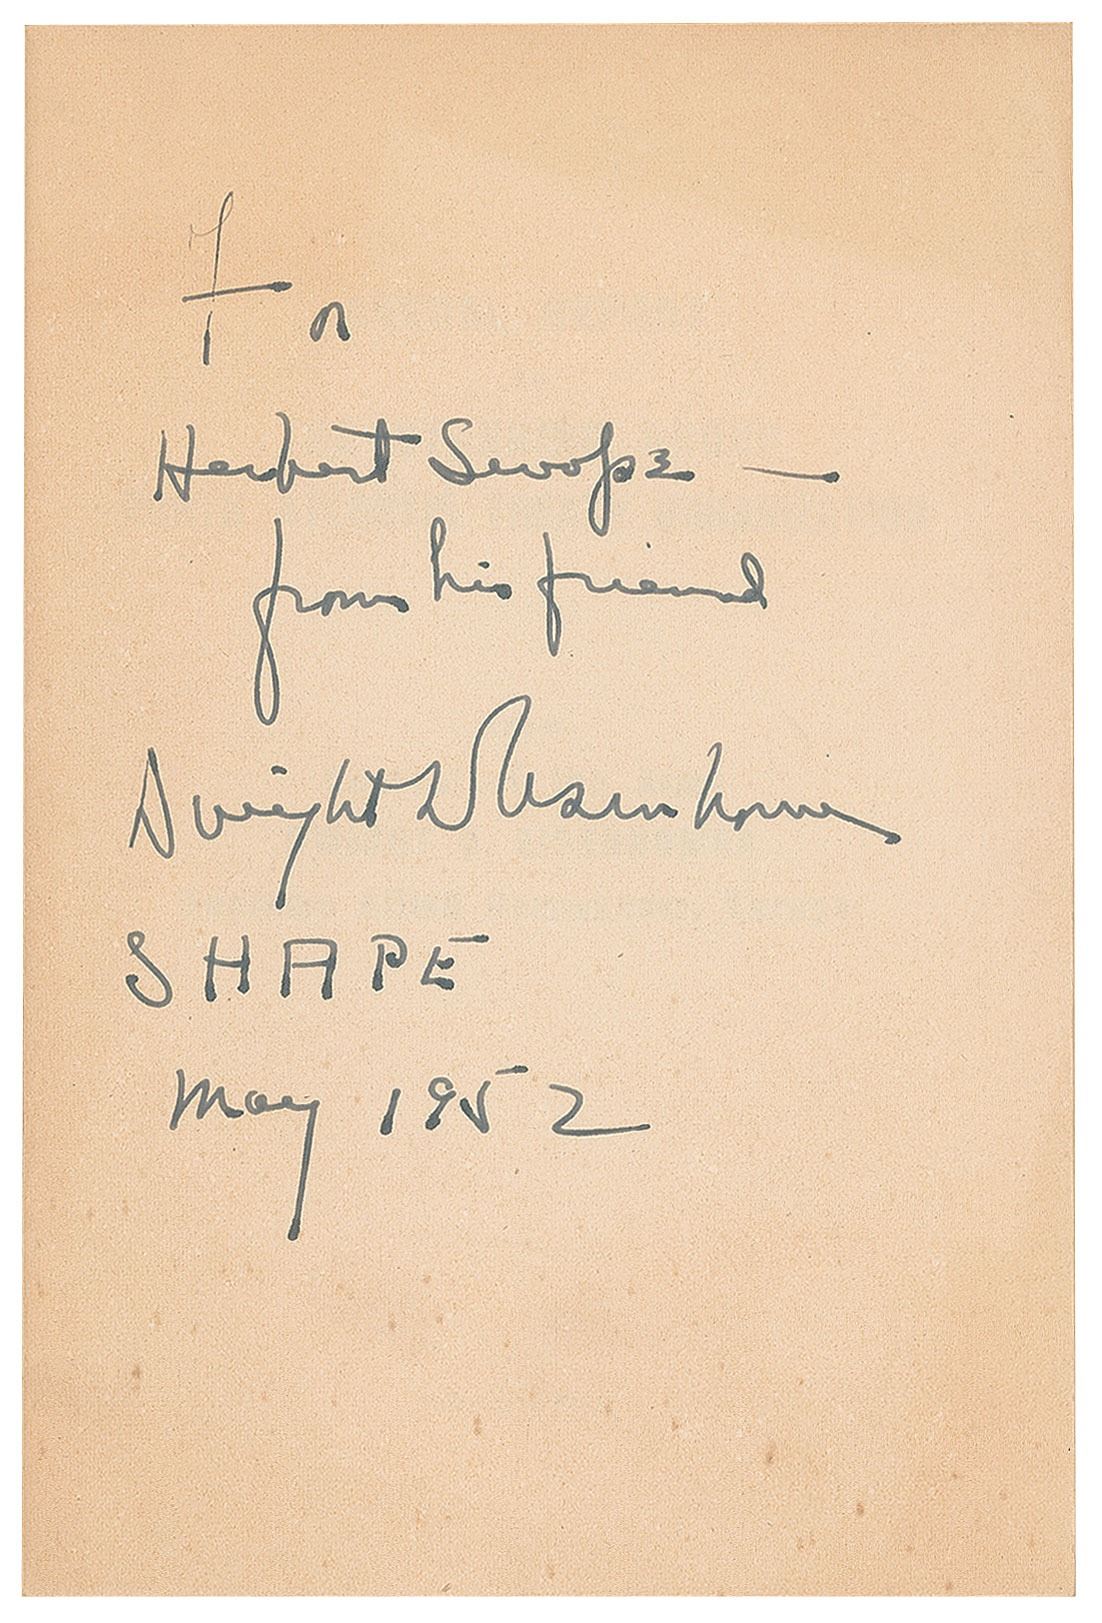 For
Herbert Swope —
from his friend
Dwight D Eisenhower
SHAPE
May 1952